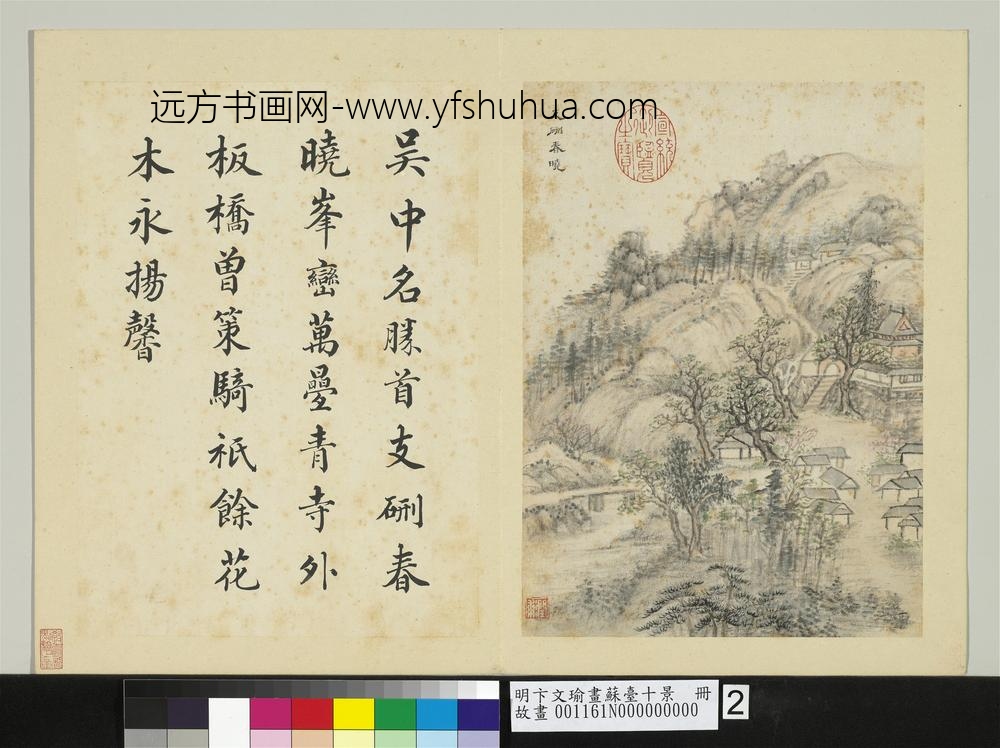 远方书画网-www.yfshuhua.com
吴中名勝首支硎春
曉峯巒萬疊青寺外
板橋曾策騎祇餘花
木永揚馨
支硎春曉
宣統御覽之寶
明卞文瑜畫蘇臺十景 冊
故畫 001161N000000000
2